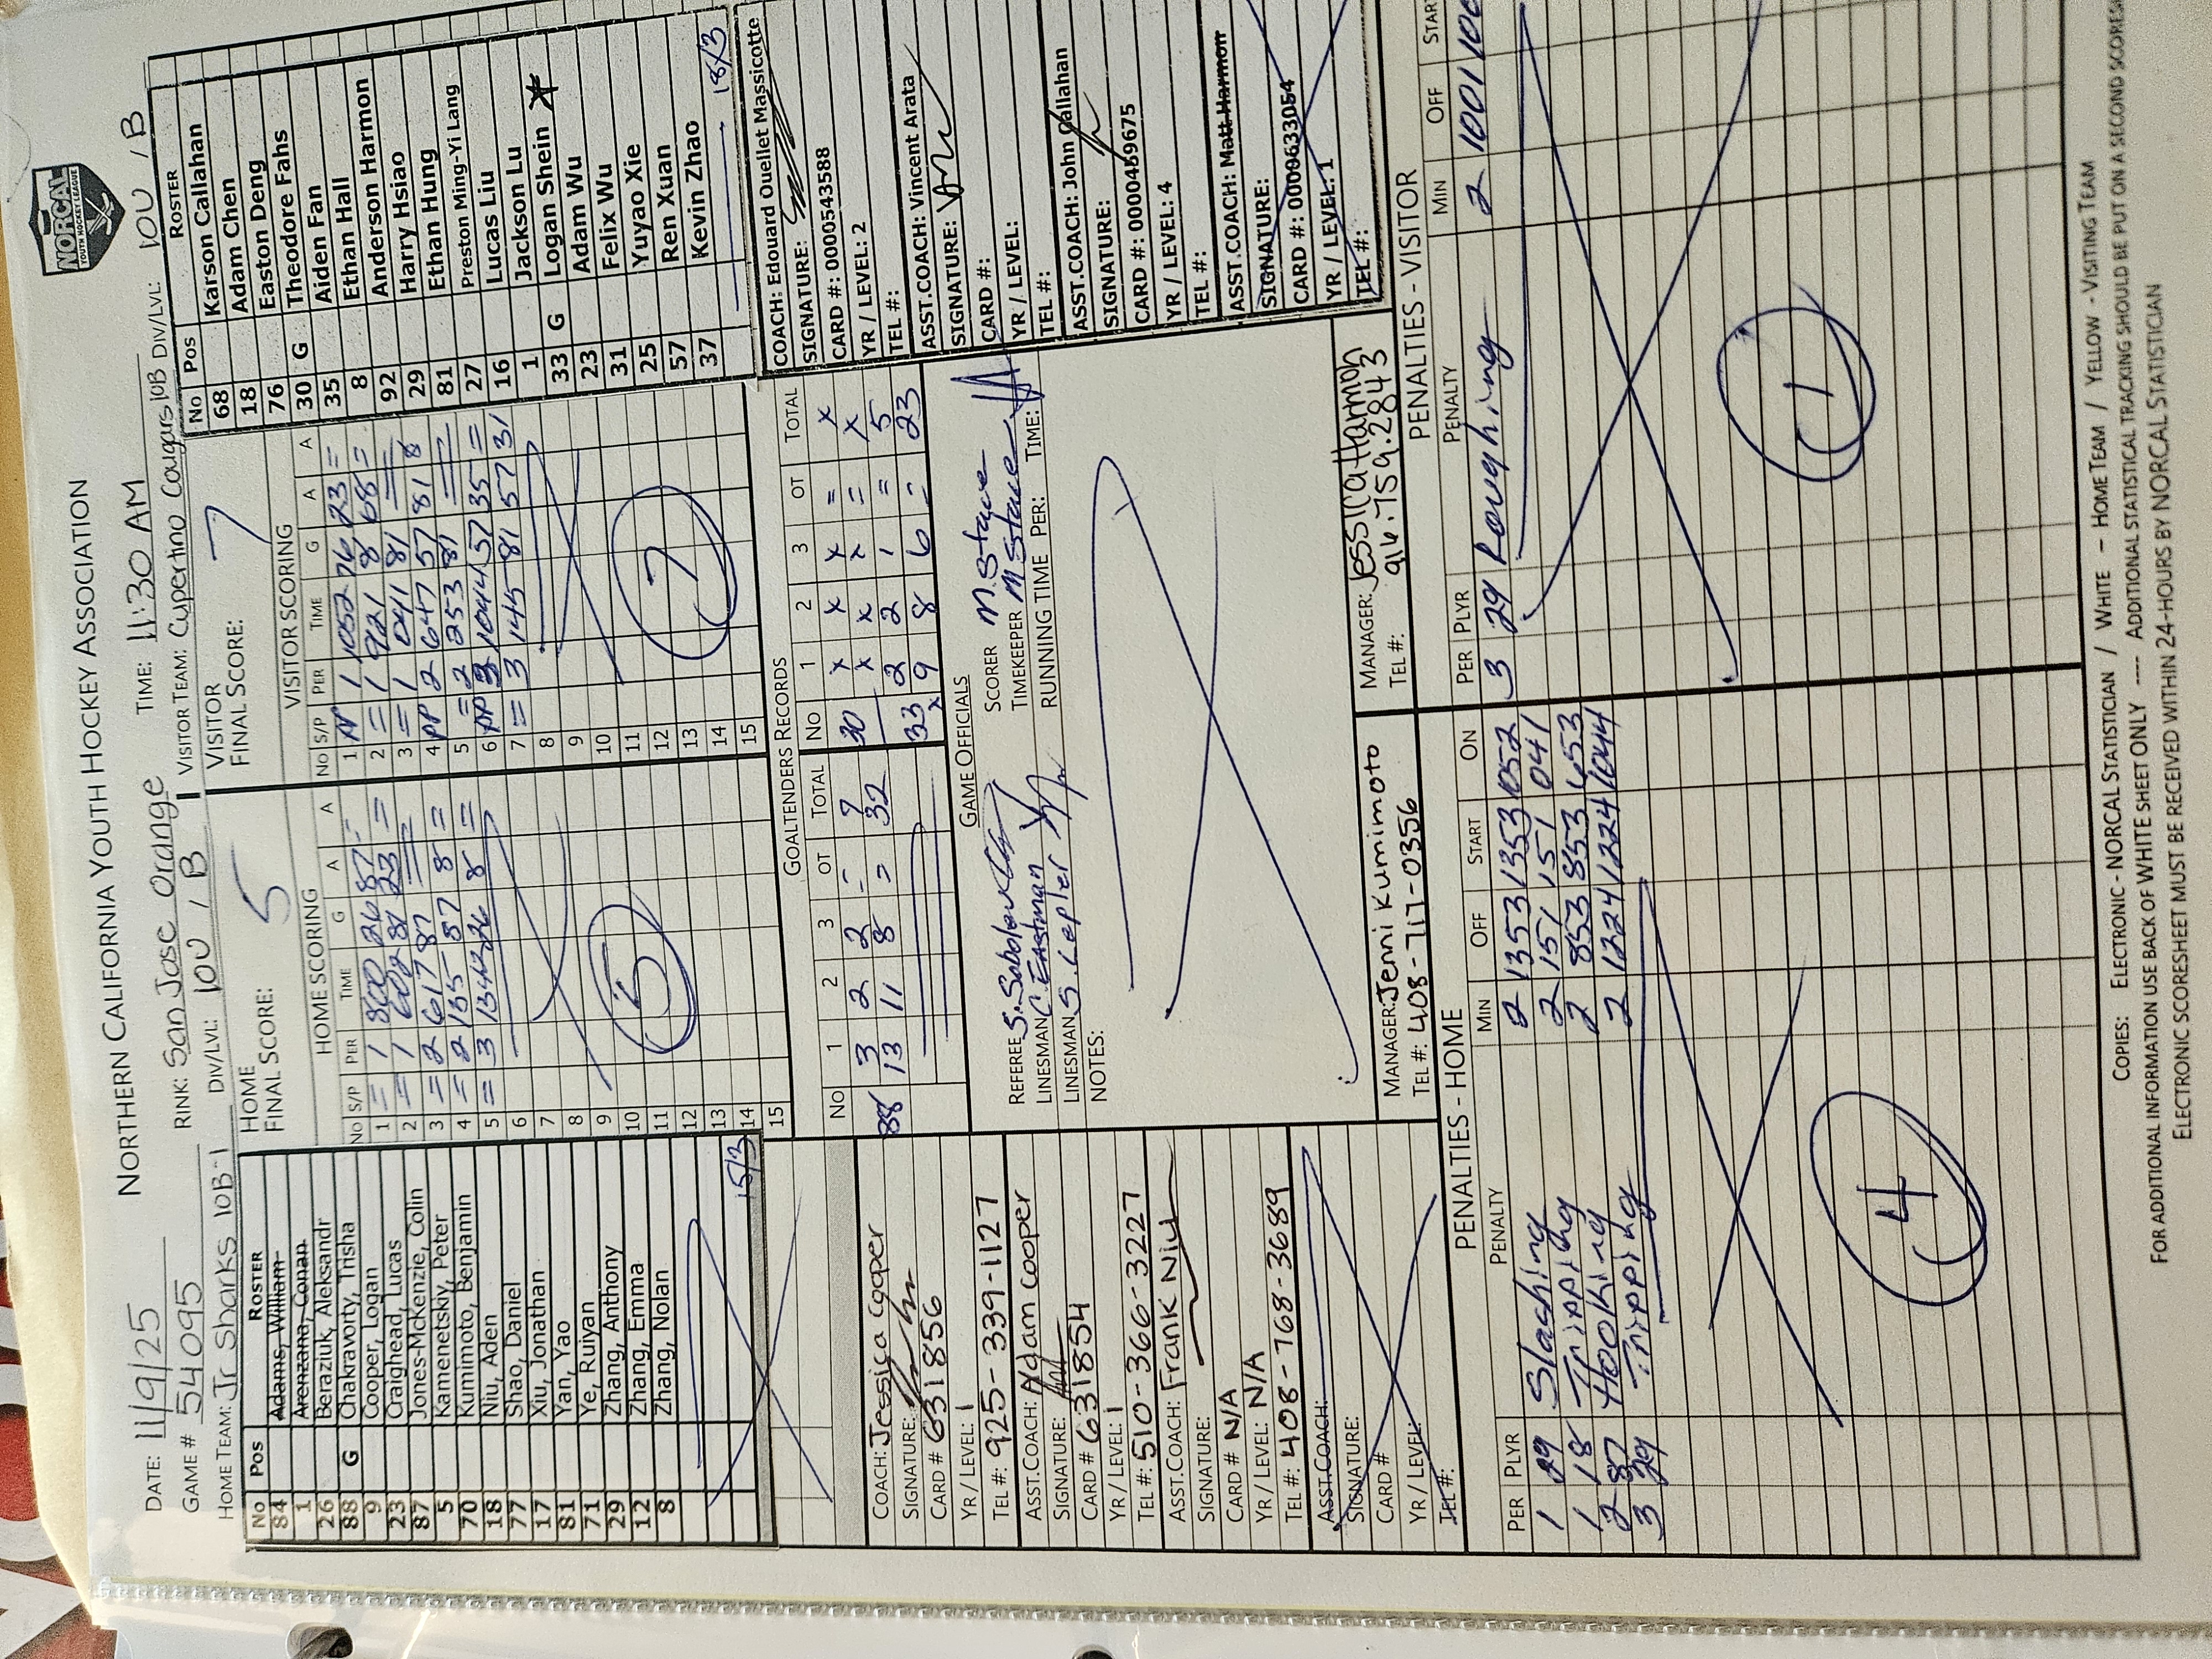 NORCAL
YOUTH HOCKEY LEAGUE
NORTHERN CALIFORNIA YOUTH HOCKEY ASSOCIATION
DATE: 11/9/25 RINK: San Jose Orange TIME: 11:30 AM DIV/LVL: 10U / B
GAME # 54095 DIV/LVL: 10U / B VISITOR TEAM: Cupertino Cougars 10B
HOME TEAM: Jr Sharks 10B-1
HOME FINAL SCORE: 5
VISITOR FINAL SCORE: 7
No Pos ROSTER
84 Adams, William
1 Arenzana, Conan
26 Beraziuk, Aleksandr
88 G Chakravorty, Trisha
9 Cooper, Logan
23 Craighead, Lucas
87 Jones-Mckenzie, Colin
5 Kamenetskiy, Peter
70 Kumimoto, Benjamin
18 Niu, Aden
77 Shao, Daniel
17 Xiu, Jonathan
81 Yan, Yao
71 Ye, Ruiyan
29 Zhang, Anthony
12 Zhang, Emma
8 Zhang, Nolan
15/3
HOME SCORING
No S/P PER TIME G A A
1 = 1 800 26 87 =
2 = 1 602 81 23 =
3 = 2 617 87
4 = 2 135 87 8 =
5 = 3 1342 26 8 =
6
7
8
9
10
11
12
13
14
15
5
VISITOR SCORING
No S/P PER TIME G A A
1 PP 1 1052 76 23 =
2 = 1 921 81 68 =
3 = 1 041 81
4 PP 2 647 57 81 8
5 = 2 253 81
6 PP 3 1044 57 35 =
7 = 3 145 81 57 31
8
9
10
11
12
13
14
15
7
No Pos ROSTER
68 Karson Callahan
18 Adam Chen
76 Easton Deng
30 G Theodore Fahs
35 Aiden Fan
8 Ethan Hall
92 Anderson Harmon
29 Harry Hsiao
81 Ethan Hung
27 Preston Ming-Yi Lang
16 Lucas Liu
1 Jackson Lu
33 G Logan Shein
23 Adam Wu
31 Felix Wu
25 Yuyao Xie
57 Ren Xuan
37 Kevin Zhao
18/3
GOALTENDERS RECORDS
No 1 2 3 OT TOTAL
88 3 2 2 = 7
13 11 8 = 32
No 1 2 3 OT TOTAL
30 x x x = x
x x x = x
33 2 2 1 = 5
x 9 8 6 = 23
COACH: Jessica Cooper
SIGNATURE:
CARD # 631856
YR / LEVEL: 1
TEL #: 925-339-1127
ASST.COACH: Adam Cooper
SIGNATURE:
CARD # 631854
YR / LEVEL: 1
TEL #: 510-366-3227
ASST.COACH: Frank Niu
SIGNATURE:
CARD # N/A
YR / LEVEL: N/A
TEL #: 408-768-3689
ASST.COACH:
SIGNATURE:
CARD #
YR / LEVEL:
TEL #:
GAME OFFICIALS
REFEREE SCORER M. Stace
LINESMAN C. Eastman TIMEKEEPER M Stace
LINESMAN S. Lepler RUNNING TIME PER: TIME:
NOTES:
MANAGER: Jenni Kumimoto
TEL #: 408-717-0356
MANAGER: Jessica Harmon
TEL #: 916.759.2843
COACH: Edouard Ouellet Massicotte
SIGNATURE:
CARD #: 0000543588
YR / LEVEL: 2
TEL #:
ASST.COACH: Vincent Arata
SIGNATURE:
CARD #:
YR / LEVEL:
TEL #:
ASST.COACH: John Callahan
SIGNATURE:
CARD #: 0000459675
YR / LEVEL: 4
TEL #:
ASST.COACH: Matt Harmon
SIGNATURE:
CARD #: 0000633054
YR / LEVEL: 1
TEL #:
PENALTIES - HOME
PER PLYR PENALTY MIN OFF START ON
1 29 Slashing 2 1353 1353 1052
1 18 Tripping 2 151 151 041
2 87 Hooking 2 853 853 653
3 29 Tripping 2 1224 1224 1044
4
PENALTIES - VISITOR
PER PLYR PENALTY MIN OFF START
3 29 Roughing 2 1001
1
COPIES: ELECTRONIC - NORCAL STATISTICIAN / WHITE - HOME TEAM / YELLOW - VISITING TEAM
FOR ADDITIONAL INFORMATION USE BACK OF WHITE SHEET ONLY ---- ADDITIONAL STATISTICAL TRACKING SHOULD BE PUT ON A SECOND SCORES
ELECTRONIC SCORESHEET MUST BE RECEIVED WITHIN 24-HOURS BY NORCAL STATISTICIAN